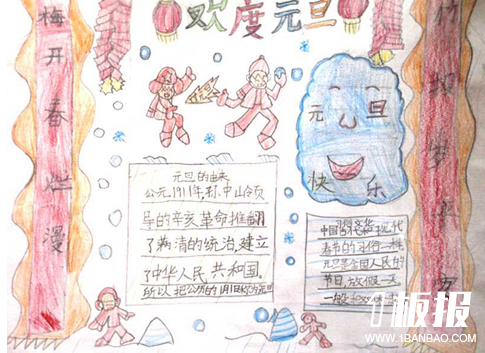 欢度元旦
梅开春烂漫
竹报岁平安
元旦
快乐
元旦的由来
公元1911年,孙中山领
导的辛亥革命推翻
了满清的统治,建立
了中华人民共和国.
所以把公历的1月1日
中国 现代
春节的习俗一样
元旦是全国人民的
节日,放假一天
一般
1板报
WWW.1BANBAO.COM